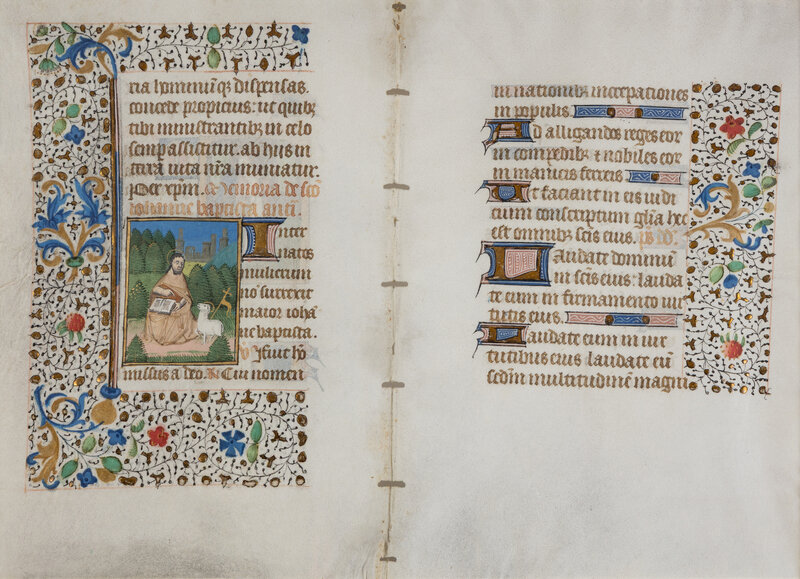 ria hominuqꝫ dispensas
concede propicius: ut quibꝫ
tibi ministrantibꝫ in celo
semp assistitur. ab hiis in
terra uita nr̃a muniatur.
p̱ xp̃m. Memoria de sc̃o
iohanne baptista antͥ.
Inter
natos
mulierum
nō surrexit
maior iohā
ne baptista.
ꝟ Fuit hō
missus a deo. ꝶ Cui nomen
in nationibꝫ increpationes
in populis
Ad alligandos reges eor
in compedibꝫ ⁊ nobiles eor
in manicis ferreis
Vt faciant in eis iudi
cium conscriptum gl̃ia hec
est omnibꝫ sc̃is eius. ps̄ dd̄.
Laudate dominū
in sc̃is eius: lauda
te eum in firmamento uir
tutis eius.
Laudate eum in uir
tutibus eius laudate eū
secd̄m multitudinē magni